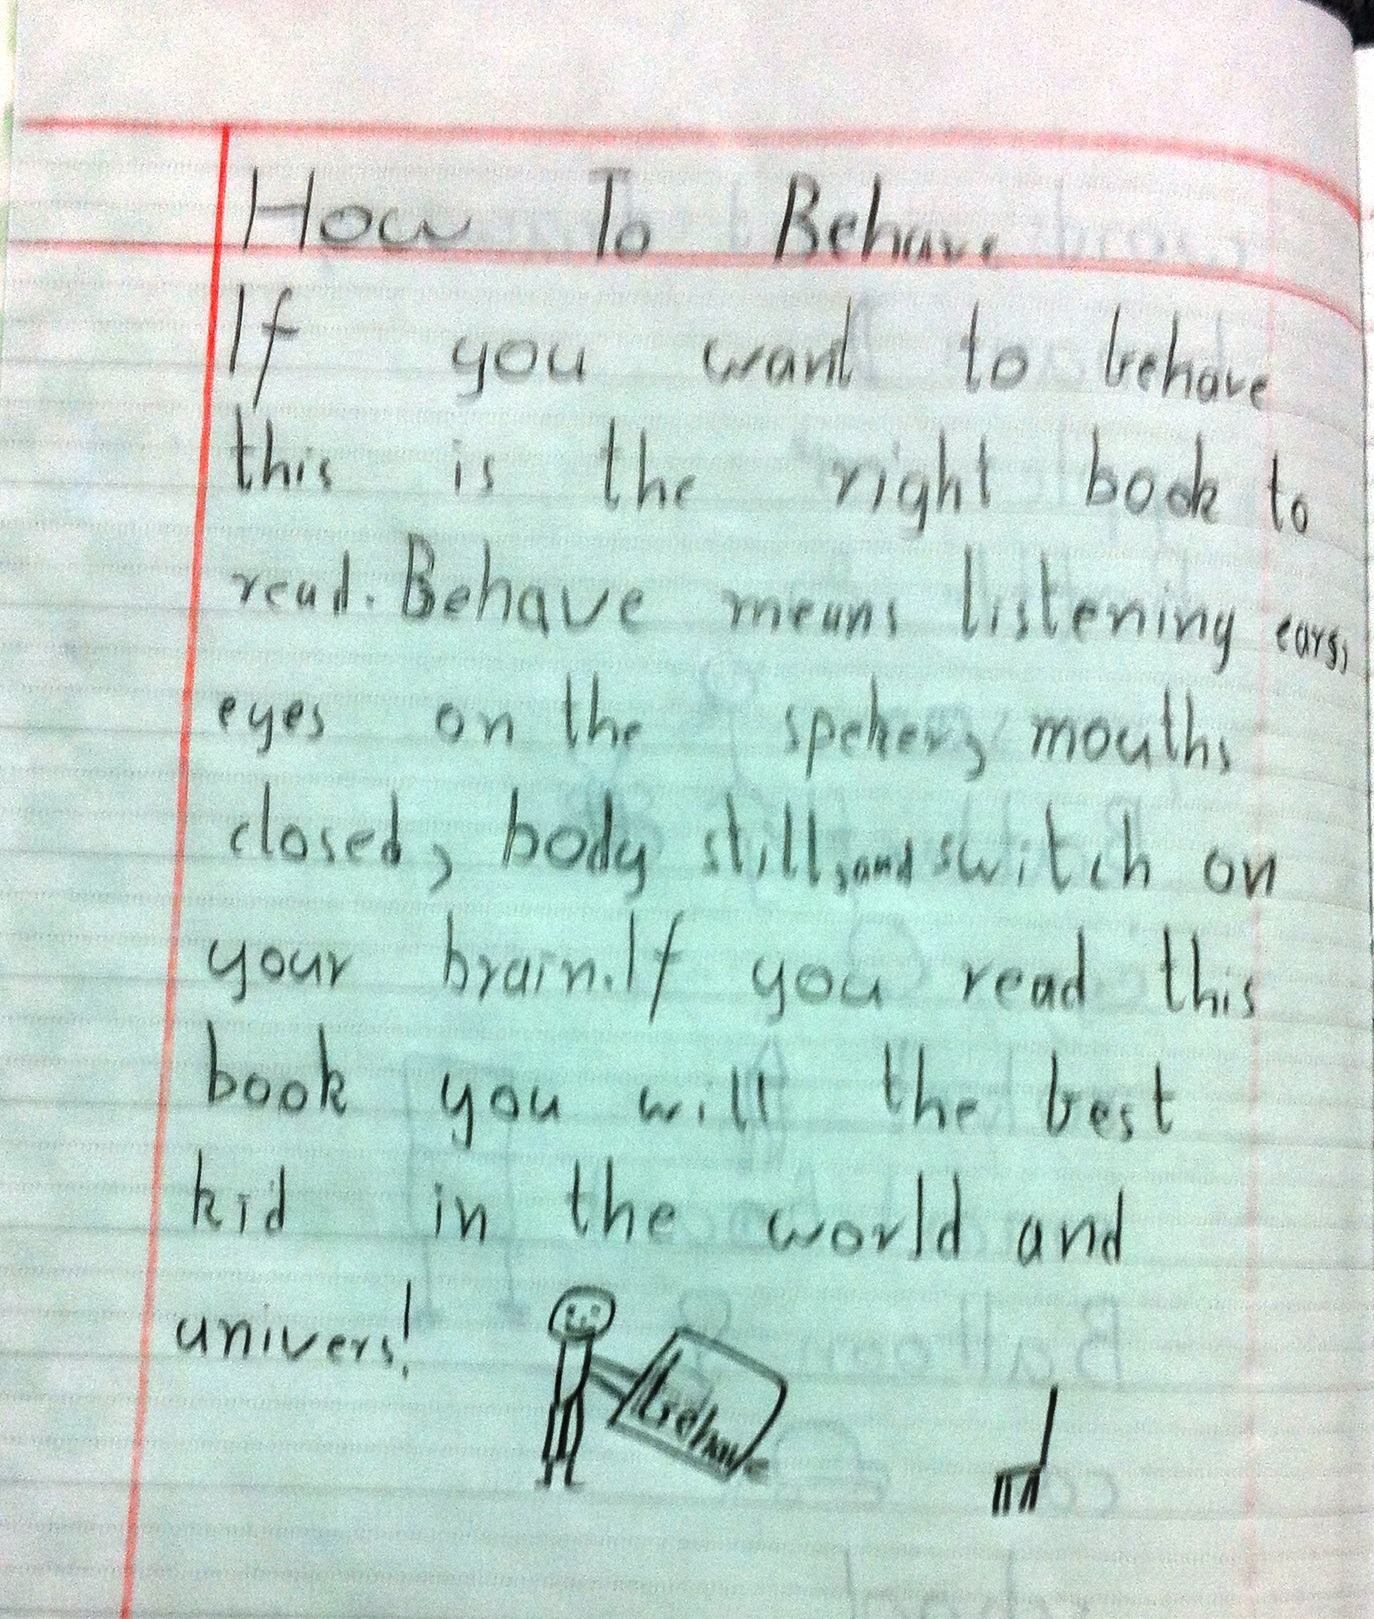 How To Behave
If you want to behave
this is the right book to
read. Behave means listening ears,
eyes on the speker, mouths
closed, body still, and switch on
your brain. If you read this
book you will the best
kid in the world and
univers!
behave